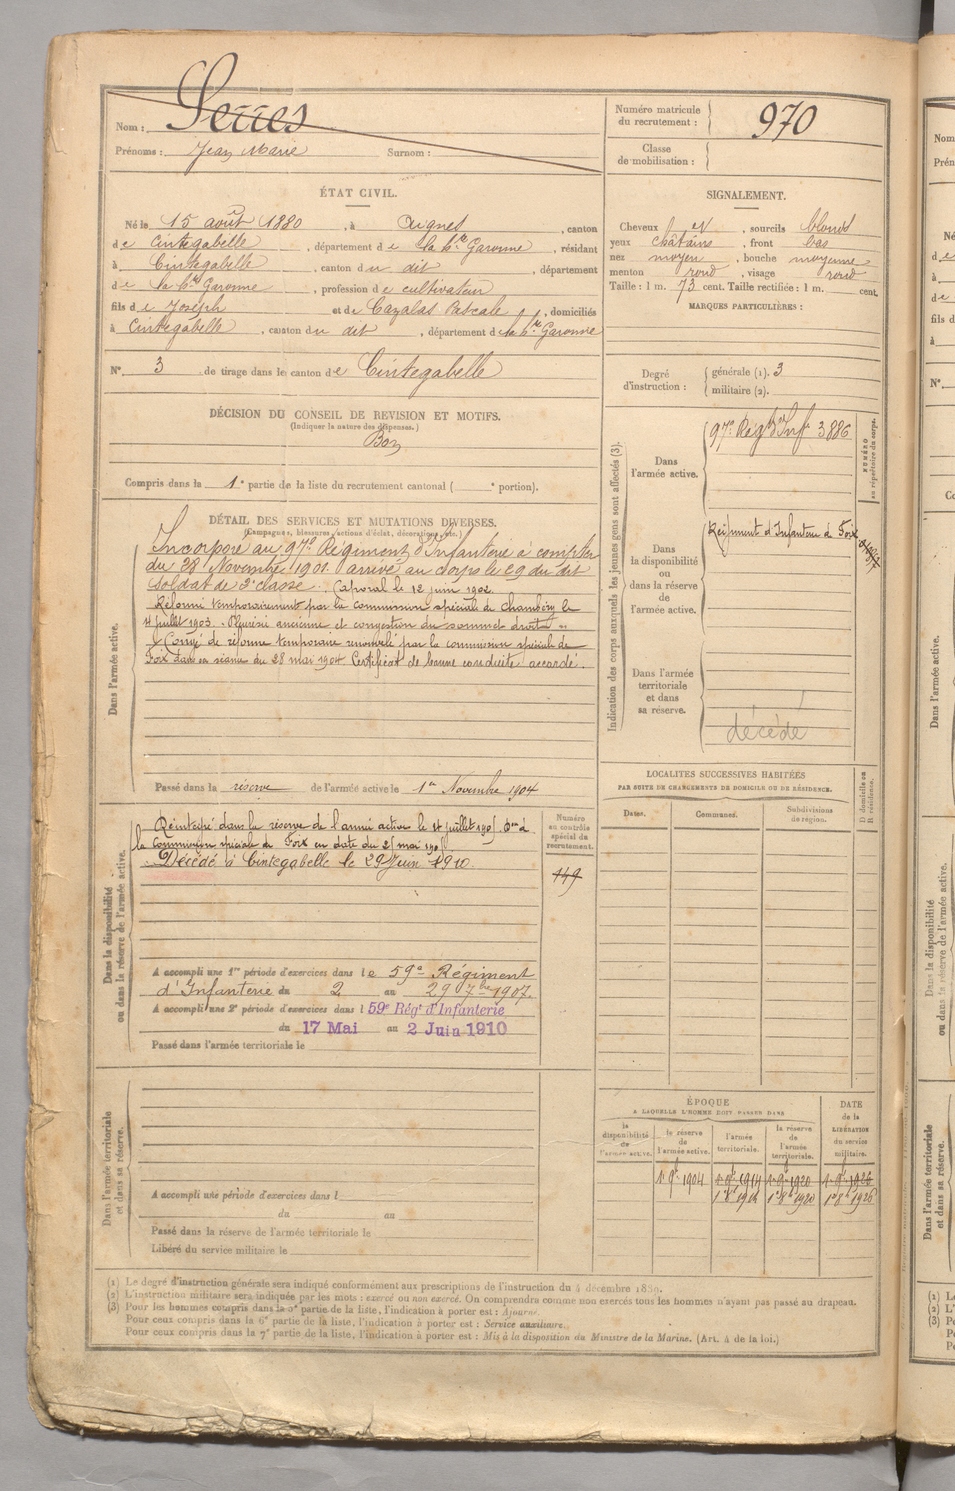 Nom : Serres
Prénoms : Jean Marie Surnom :
Numéro matricule du recrutement : 970
Classe de mobilisation :
ÉTAT CIVIL.
Né le 15 août 1880, à Aignes, canton
de Cintegabelle, département de la Hte Garonne, résidant
à Cintegabelle, canton du dit, département
de la Hte Garonne, profession de cultivateur
fils de Joseph et de Cazalas Pascale, domiciliés
à Cintegabelle, canton du dit, département de la Hte Garonne
N° 3 de tirage dans le canton de Cintegabelle
SIGNALEMENT.
Cheveux , sourcils blonds
yeux châtains, front bas
nez moyen, bouche moyenne
menton rond, visage rond
Taille : 1 m. 73 cent. Taille rectifiée : 1 m. cent.
MARQUES PARTICULIÈRES :
Degré d'instruction : générale (1). 3
militaire (2).
DÉCISION DU CONSEIL DE REVISION ET MOTIFS.
(Indiquer la nature des dispenses.)
Bon
Compris dans la 1e partie de la liste du recrutement cantonal ( e portion).
DÉTAIL DES SERVICES ET MUTATIONS DIVERSES.
(Campagnes, blessures, actions d'éclat, décorations, etc.)
Dans l'armée active.
Incorporé au 97e Régiment d'Infanterie à compter
du 28 Novembre 1901. arrivé au Corps le 29 du dit
Soldat de 2e classe. Caporal le 12 juin 1902.
Réformé temporairement par la commission spéciale de Chambéry le
4 juillet 1903. Pleurésie ancienne et congestion du sommet droit.
Congé de réforme temporaire renouvelé par la commission spéciale de
Foix dans sa séance du 28 mai 1904 Certificat de bonne conduite accordé.
Passé dans la réserve de l'armée active le 1er Novembre 1904
Indication des corps auxquels les jeunes gens sont affectés (3).
Dans l'armée active.
97e Régt d'Inf. 3886
NUMÉRO au répertoire du corps.
Dans la disponibilité ou dans la réserve de l'armée active.
Régiment d'Infanterie de Foix
Dans l'armée territoriale et dans sa réserve.
décédé
LOCALITÉS SUCCESSIVES HABITÉES
PAR SUITE DE CHANGEMENTS DE DOMICILE OU DE RÉSIDENCE.
Dates. Communes. Subdivisions de région. D domicile ou R résidence.
Dans la disponibilité ou dans la réserve de l'armée active.
Réintégré dans la réserve de l'armée active le 4 juillet
la Commission spéciale de Foix en date du mai
Décédé à Cintegabelle le 29 Juin 1910.
Numéro au contrôle spécial du recrutement.
149
A accompli une 1re période d'exercices dans le 59e Régiment
d'Infanterie du 2 au 29 7bre 1907.
A accompli une 2e période d'exercices dans l 59e Régt d'Infanterie
du 17 Mai au 2 Juin 1910
Passé dans l'armée territoriale le
Dans l'armée territoriale et dans sa réserve.
A accompli une période d'exercices dans l
du au
Passé dans la réserve de l'armée territoriale le
Libéré du service militaire le
ÉPOQUE
A LAQUELLE L'HOMME DOIT PASSER DANS
DATE de la LIBÉRATION du service militaire.
la disponibilité de l'armée active. la réserve de l'armée active. l'armée territoriale. la réserve de l'armée territoriale.
1er 9bre 1904 1er 9bre 1914 1er 9bre 1920 1er 9bre 1926
1er 8bre 1914 1er 8bre 1920 1er 8bre 1926
(1) Le degré d'instruction générale sera indiqué conformément aux prescriptions de l'instruction du 4 décembre 1889.
(2) L'instruction militaire sera indiquée par les mots : exercé ou non exercé. On comprendra comme non exercés tous les hommes n'ayant pas passé au drapeau.
(3) Pour les hommes compris dans la 5e partie de la liste, l'indication à porter est : Ajourné.
Pour ceux compris dans la 6e partie de la liste, l'indication à porter est : Service auxiliaire.
Pour ceux compris dans la 7e partie de la liste, l'indication à porter est : Mis à la disposition du Ministre de la Marine. (Art. 4 de la loi.)